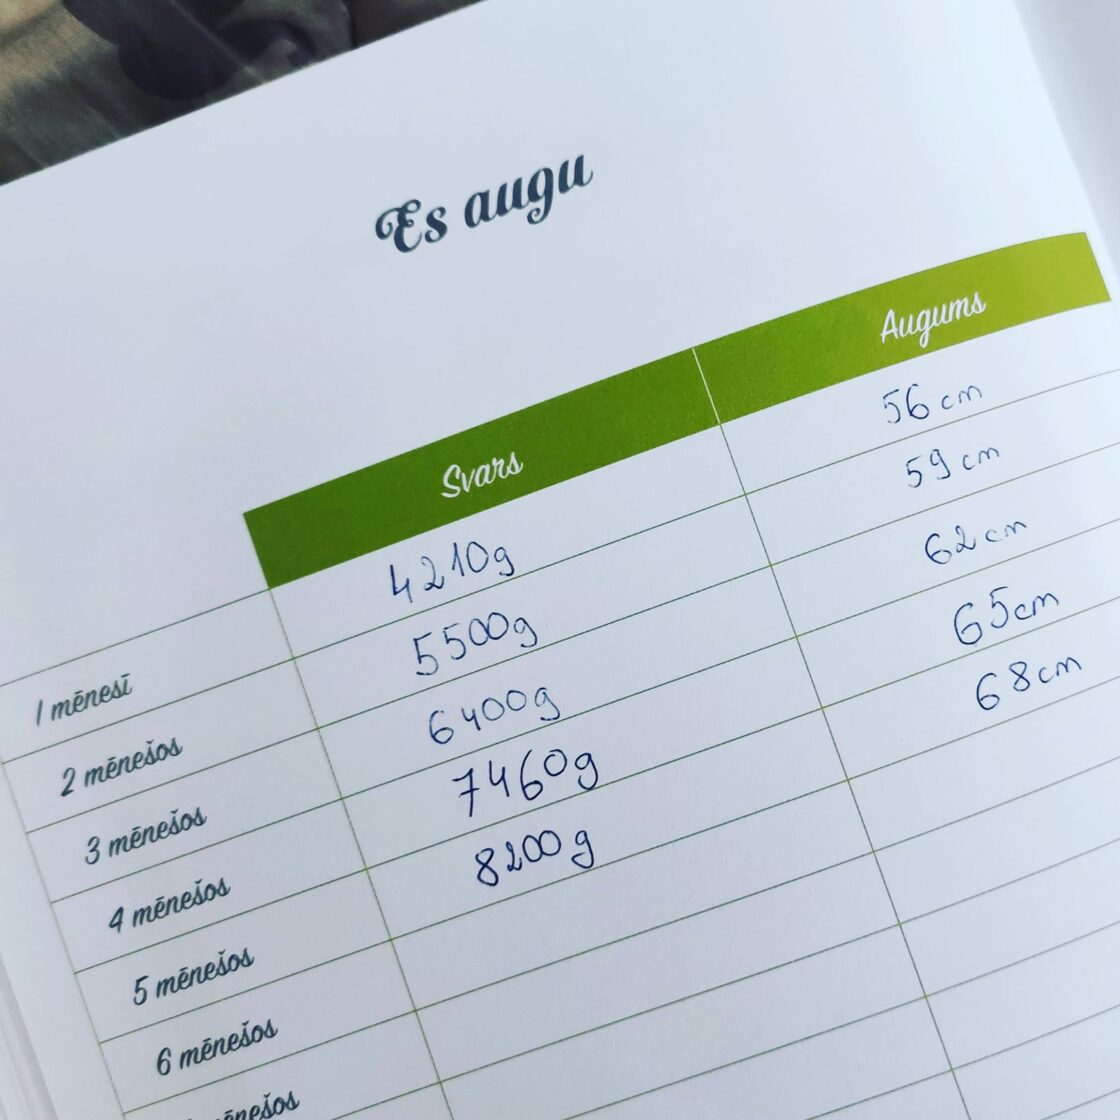 Es augu
Svars Augums
1 mēnesī 4210g 56 cm
2 mēnešos 5500g 59 cm
3 mēnešos 6400g 62 cm
4 mēnešos 7460g 65 cm
5 mēnešos 8200g 68 cm
6 mēnešos
mēnešos